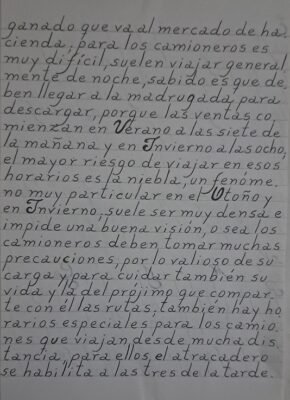 ganado que va al mercado de ha-
cienda, para los camioneros es
muy difícil, suelen viajar general
mente de noche, sabido es que de
ben llegar a la madrugada, para
descargar, porque las ventas co
mienzan en Verano a las siete de
la mañana y en Invierno a las ocho,
el mayor riesgo de viajar en esos
horarios es la niebla, un fenóme.
no muy particular en el Otoño y
en Invierno, suele ser muy densa e
impide una buena visión, o sea los
camioneros deben, tomar muchas
precauciones, por lo valioso de su
carga y para cuidar también su
vida y la del prójimo que compar.
te con él las rutas, también hay ho
rarios especiales para los camio.
nes que viajan, desde mucha dis
tancia, para ellos, el atracadero
se habilita a las tres de la tarde.